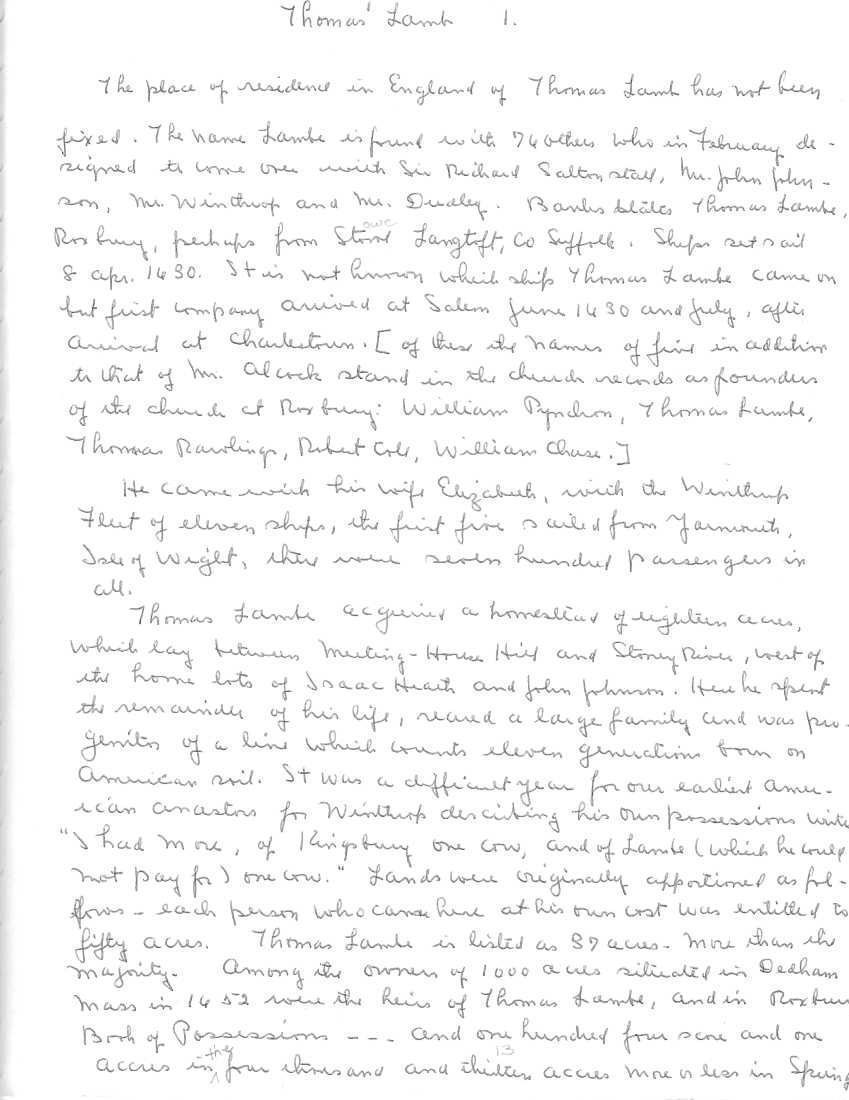 Thomas' Lamb 1.
The place of residence in England of Thomas Lamb has not been
fixed. The name Lambe is found with 74 others who in February de-
signed to come over with Sir Richard Saltonstall, Mr. John John-
son, Mr. Winthrop and Mr. Dudley. Banks states Thomas Lambe,
Roxbury, perhaps from Stowe Langtoft, Co Suffolk. Ships set sail
8 Apr. 1630. It is not known which ship Thomas Lambe came on
but first company arrived at Salem June 1630 and July, after
arrival at Charlestown. [ of these the names of five in addition
to that of Mr. Alcock stand in the church records as founders
of the church at Roxbury: William Pynchon, Thomas Lambe,
Thomas Rawlings, Robert Cole, William Chase.]
He came with his wife Elizabeth, with the Winthrop
Fleet of eleven ships, the first five sailed from Yarmouth,
Isle of Wight, there were seven hundred passengers in
all.
Thomas Lambe acquired a homestead of eighteen acres,
which lay between Meeting-House Hill and Stoney River, west of
the home lots of Isaac Heath and John Johnson. Here he spent
the remainder of his life, reared a large family and was pro-
genitor of a line which counts eleven generations born on
American soil. It was a difficult year for our earliest Amer-
ican ancestors for Winthrop describing his own possessions write
"I had more, of Kingsbury one cow, and of Lambe (which he could
not pay for) one cow." Lands were originally apportioned as fol-
lows - each person who came here at his own cost was entitled to
fifty acres. Thomas Lambe is listed as 87 acres - more than the
majority. Among the owners of 1000 acres situated in Dedham
Mass in 1652 were the heirs of Thomas Lambe, and in Roxbury
Book of Possessions --- and one hundred four score and one
accres in the four thousand and thirteen 13 accres more or less in Spring